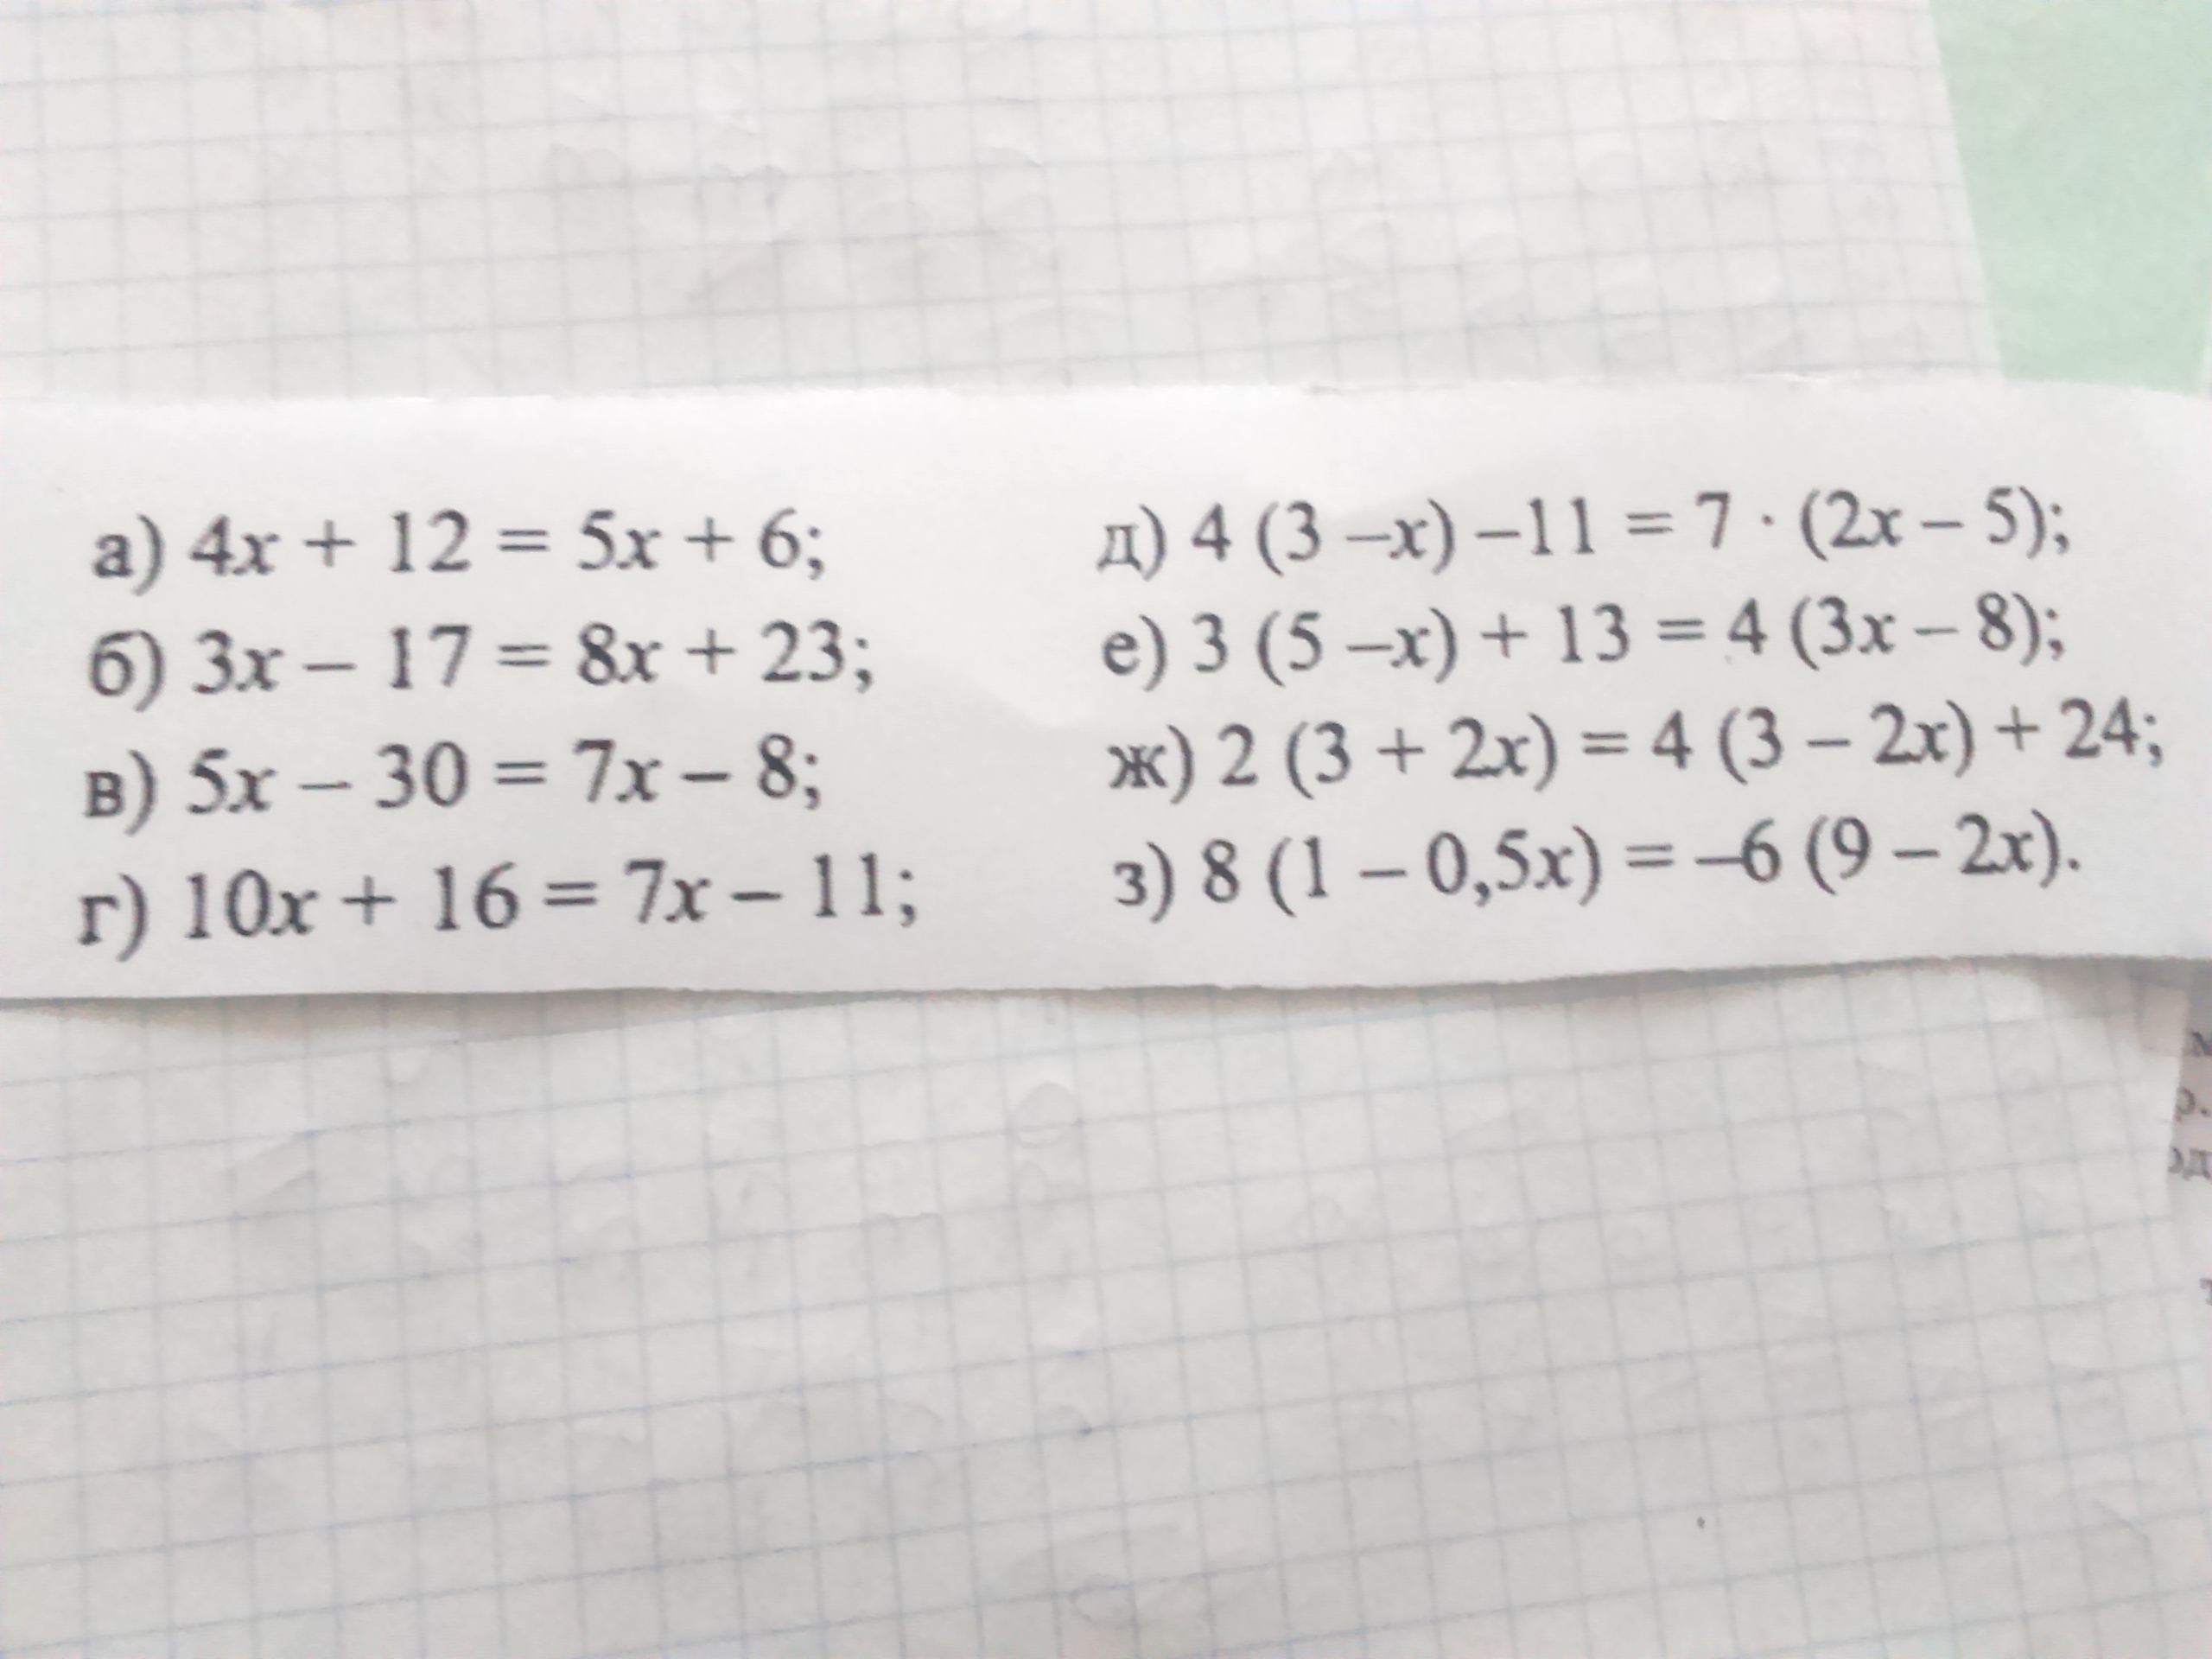 а) 4x + 12 = 5x + 6;
б) 3x – 17 = 8x + 23;
в) 5x – 30 = 7x – 8;
г) 10x + 16 = 7x – 11;
д) 4 (3 –x) –11 = 7 · (2x – 5);
е) 3 (5 –x) + 13 = 4 (3x – 8);
ж) 2 (3 + 2x) = 4 (3 – 2x) + 24;
з) 8 (1 – 0,5x) = –6 (9 – 2x).